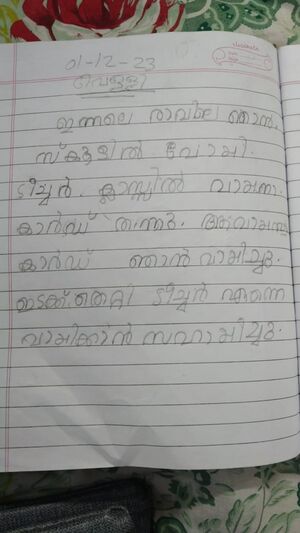 classmate
01-12-23
വെള്ളി
ഇന്നലെ രാവിലെ ഞാൻ
സ്കൂളിൽ പോയി.
ടീച്ചർ ക്ലാസ്സിൽ വായന
കാർഡ് തന്നു. ആ വായന
കാർഡ് ഞാൻ വായിച്ചു.
ഇടക്ക് തെറ്റി ടീച്ചർ എന്നെ
വായിക്കാൻ സഹായിച്ചു.